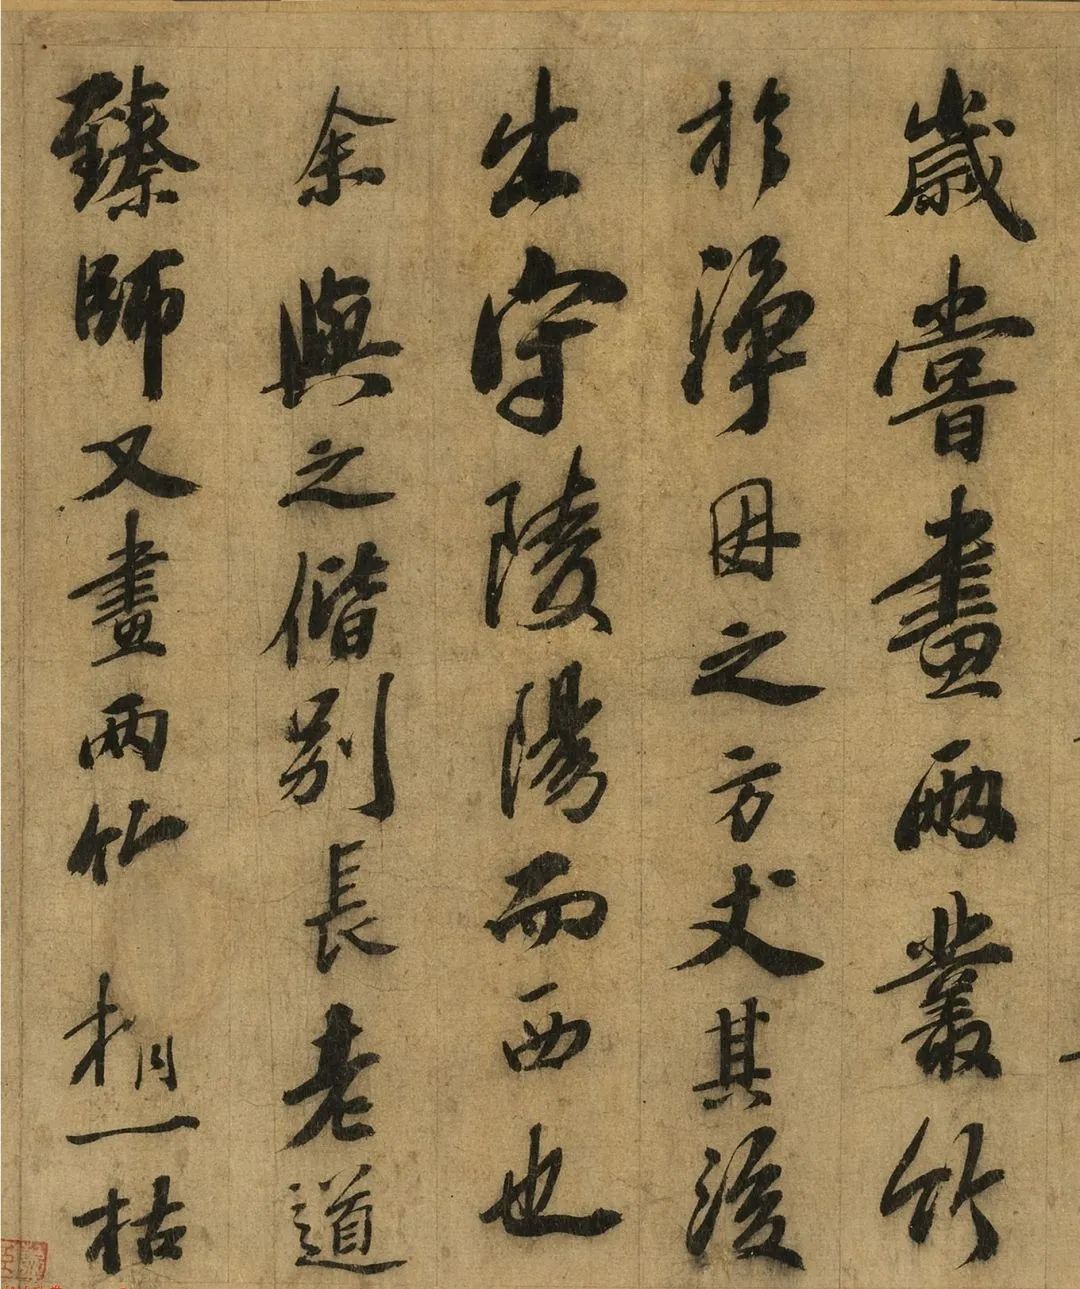 歲嘗畫兩叢竹
於淨因之方丈其後
出守陵陽而西也
余與之偕別長老道
臻師又畫兩竹梢一枯